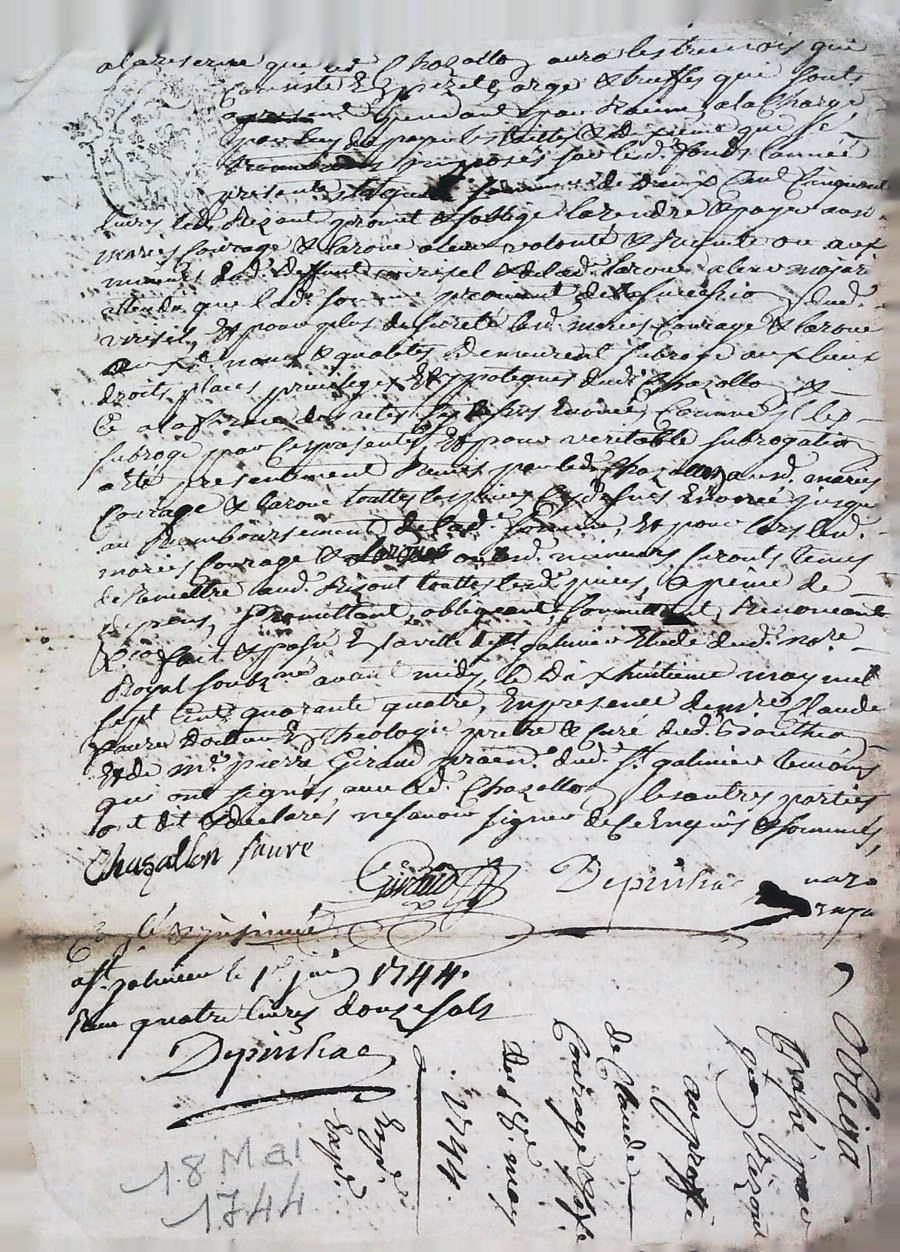 a la reserve que led. Chazallon aura les tremois qui
Consiste En pizet orge & truffes qui sonts
pendant par Racine, a la Charge
par luy de payer les tailles & dixieme que se
imposés sur led. fonds l'année
presente, laquelle somme de Deux Cent Cinquante
livres led. Rizont promet & soblige la rendre & payer auxd.
mariés Courage & laroue a leur volonté & Requete ou aux
mineurs dud. deffunt & de lad. laroue a leur majori
attendu que lad. somme provient de la succession dud.
Et pour plus de sureté led. mariés Courage & laroue
aux d. noms & qualités demeurent subrogé aux lieux
droits places privileges & hypoteques dud. Chazallon &
Ce a la forme des actes sy dessus Enoncés Comme il les
subroge par Ces presentes, Et pour veritable subrogation
a été presentement Remis par led. Chazallon auxd. mariés
Courage & laroue touttes les pieces Cy dessus Enoncé jusques
au Remboursement de lad. somme, Et pour lors lesd.
mariés Courage & laroue ou lesd. mineurs seronts tenus
de Remettre aud. Rizont touttes lesd. pieces, a peine de
depens, promettant, obligeant, soumettant, Renonceant
& ca. fait & passé En la ville de st. galmier Etude dud. nore.
Royal soubzné. avant midy, le Dix huitieme may mil
sept Cent quarante quatre, En presence de mre. Claude
faure Docteur En theologie pretre & Curé de
Et de me. pierre Giraud dud. st. galmier temoins
qui ont signés avec led. Chazallon, les autres parties
ont dit & declarés ne savoir signer de Ce Enquis & sommés,
Chazallon faure
Giraud Depinhac
Collé &
a st. galmier le 1er. juin 1744.
Recu quatre livres douse sols
Depinhac
Obligaôn
passé par
jean Rizont
au proffit
de Claude
Courage & sa fe.
du 18e. may
1744.
Expé.
Expé.
18 Mai
1744